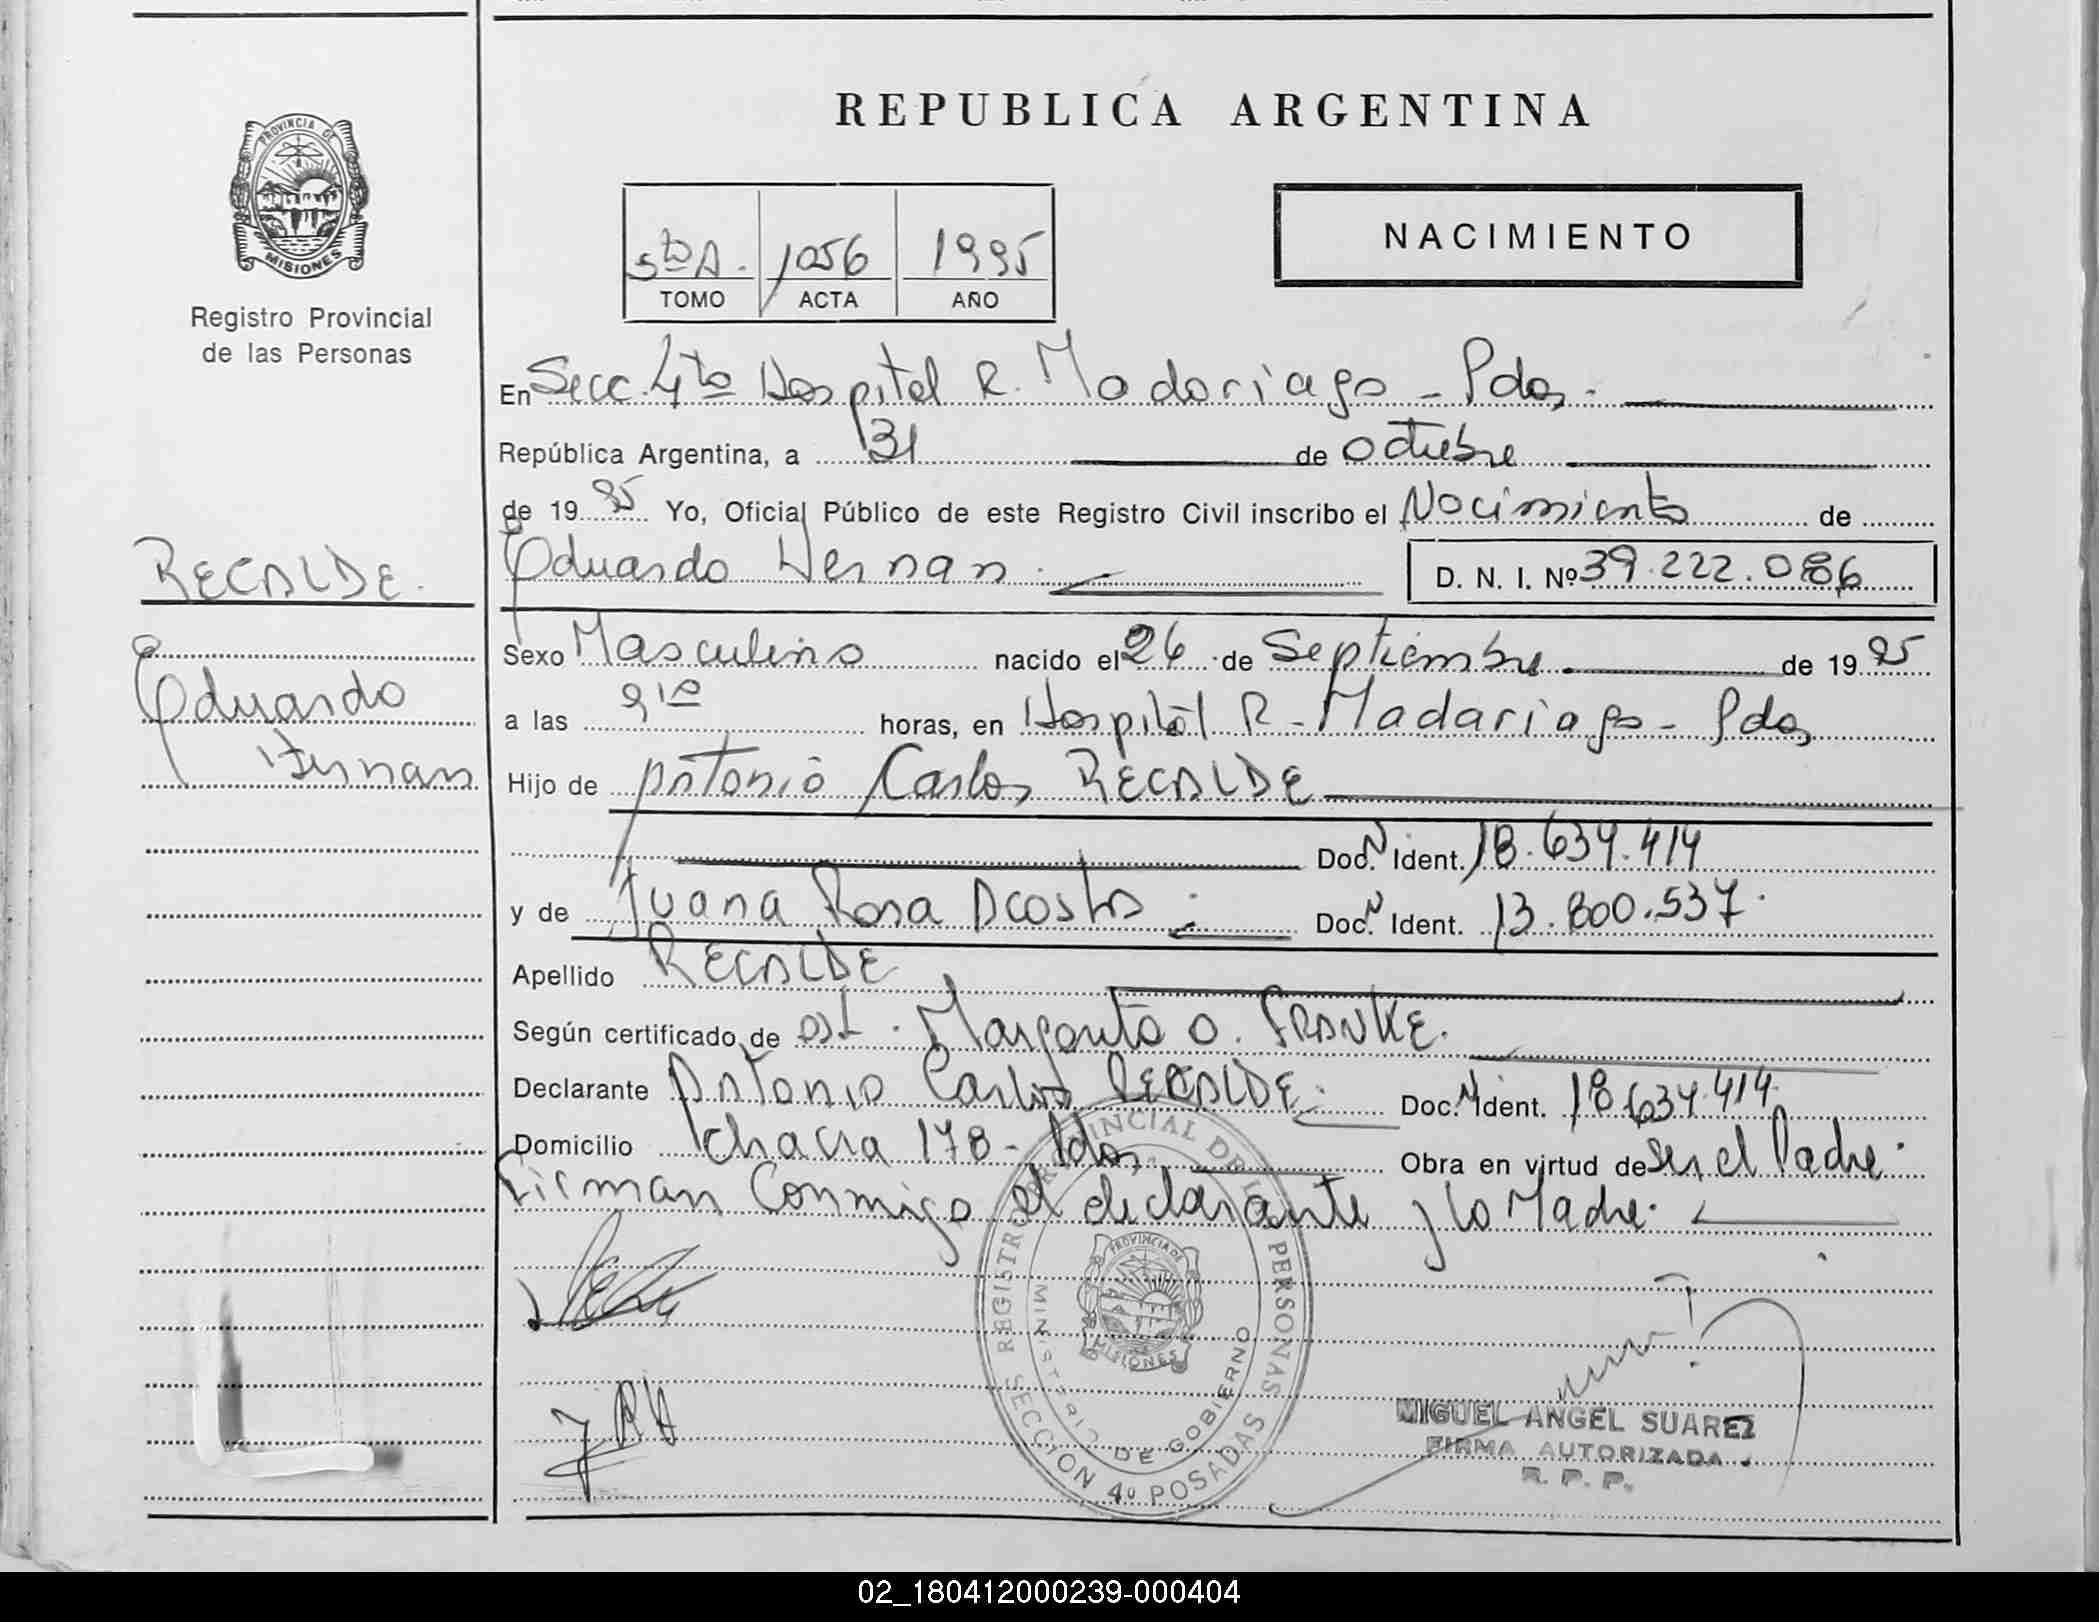 REPUBLICA ARGENTINA
PROVINCIA DE
MISIONES
Registro Provincial
de las Personas
5to A. 1056 1995
TOMO ACTA AÑO
NACIMIENTO
En Secc. 4ta Hospital R. Madariaga - Pdas.
República Argentina, a 31 de octubre
de 1995 Yo, Oficial Público de este Registro Civil inscribo el Nacimiento de
Eduardo Hernan. D. N. I. Nº 39.222.086
RECALDE.
Eduardo
Hernan
Sexo Masculino nacido el 26 de Septiembre de 1995
a las 9 10 horas, en Hospital R. Madariaga - Pdas
Hijo de Antonio Carlos RECALDE
Doc. N Ident. 18.634.414
y de Juana Rosa Acosta Doc. N Ident. 13.800.537.
Apellido RECALDE
Según certificado de Margarita O. FRANKE.
Declarante Antonio Carlos RECALDE. Doc. N Ident. 18.634.414
Domicilio chacra 178 - Pdas Obra en virtud de ser el Padre.
Firman Conmigo el declarante y la Madre.
REGISTRO PROVINCIAL DE LAS PERSONAS
MINISTERIO DE GOBIERNO
PROVINCIA DE
MISIONES
SECCION 4º POSADAS
MIGUEL ANGEL SUAREZ
FIRMA AUTORIZADA
R. P. P.
02_180412000239-000404